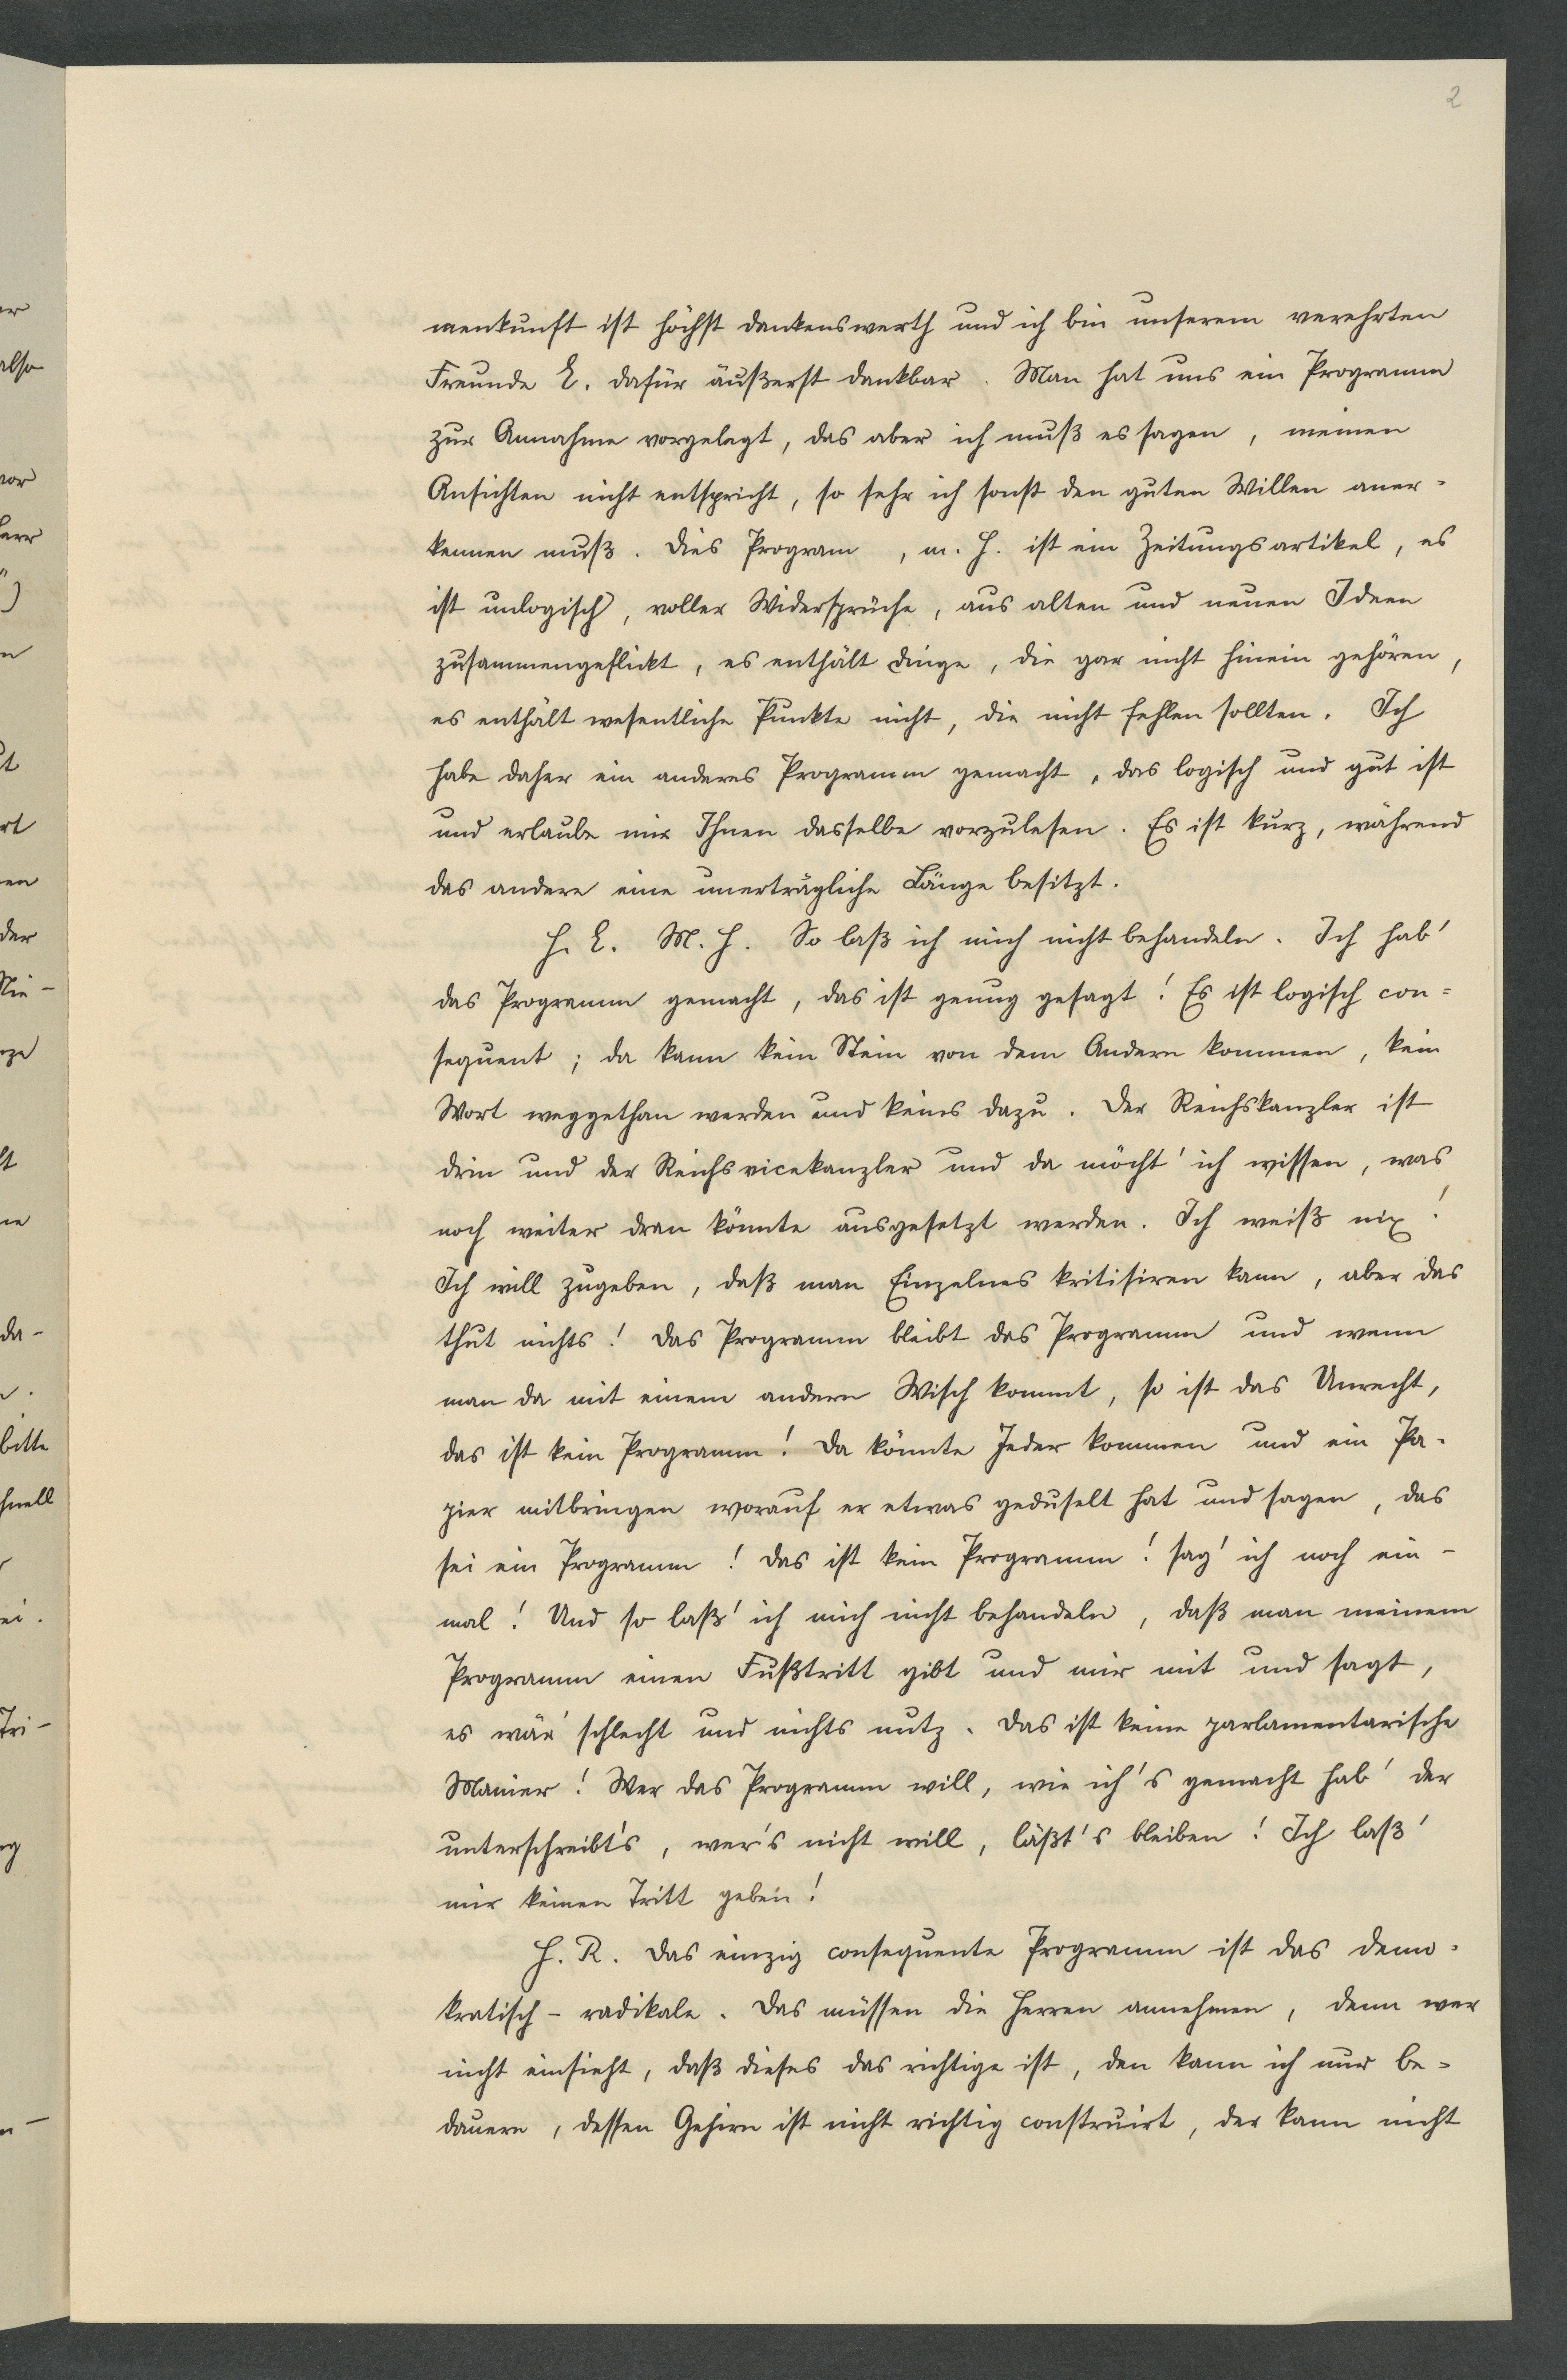 2
menkunft ist höchst dankenswerth und ich bin unserem verehrten
Freunde E. dafür äußerst dankbar. Man hat uns ein Programm
zur Annahme vorgelegt, das aber ich muß es sagen, meinen
Ansichten nicht entspricht, so sehr ich sonst den guten Willen aner-
kennen muß. Dies Program, m. H. ist ein Zeitungsartikel, es
ist unlogisch, voller Widersprüche, aus alten und neuen Ideen
zusammengeflickt, es enthält Dinge, die gar nicht hinein gehören,
es enthält wesentliche Punkte nicht, die nicht fehlen sollten. Ich
habe daher ein anderes Programm gemacht, das logisch und gut ist
und erlaube mir Ihnen dasselbe vorzulesen. Es ist kurz, während
das andere eine unerträgliche Länge besitzt.
H. E. M. H. So laß ich mich nicht behandeln. Ich hab'
das Programm gemacht, das ist genug gesagt! Es ist logisch con-
sequent; da kann kein Stein von dem Andern kommen, kein
Wort weggethan werden und keins dazu. Der Reichskanzler ist
drin und der Reichsvicekanzler und da möcht' ich wissen, was
noch weiter dran könnte ausgesetzt werden. Ich weiß nix!
Ich will zugeben, daß man Einzelnes kritisiren kann, aber das
thut nichts! Das Programm bleibt das Programm und wenn
man da mit einem andern Wisch kommt, so ist das Unrecht,
das ist kein Programm! Da könnte Jeder kommen und ein Pa-
pier mitbringen worauf er etwas geduselt hat und sagen, das
sei ein Programm! Das ist kein Programm! sag' ich noch ein-
mal! Und so laß' ich mich nicht behandeln, daß man meinem
Programm einen Fußtritt gibt und mir mit und sagt,
es wär' schlecht und nichts nutz. Das ist keine parlamentarische
Manier! Wer das Programm will, wie ich's gemacht hab' der
unterschreibt's, wer's nicht will, läßt's bleiben! Ich laß'
mir keinen Tritt geben!
H. R. Das einzig consequente Programm ist das demo-
kratisch-radikale. Das müssen die Herren annehmen, denn wer
nicht einsieht, daß dieses das richtige ist, den kann ich nur be-
dauern, dessen Gehirn ist nicht richtig construirt, der kann nicht